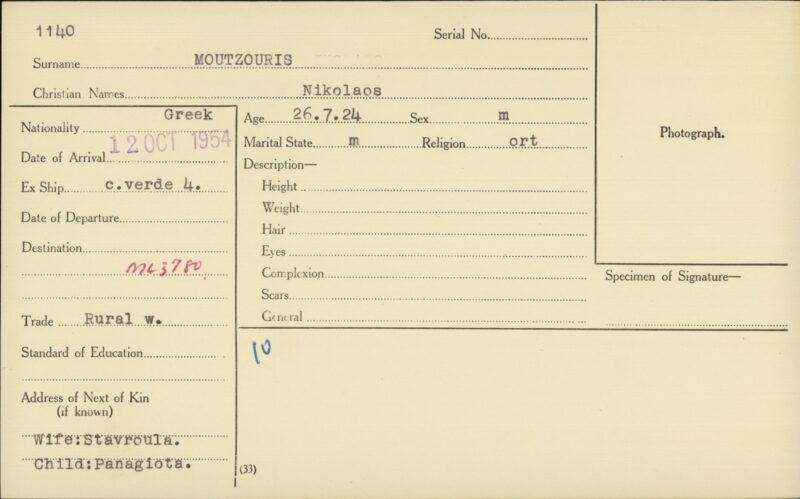 1140
Serial No.
Surname MOUTZOURIS
Christian Names Nikolaos
Nationality Greek
Date of Arrival 12 OCT 1954
Ex Ship c.verde 4.
Date of Departure
Destination
MC3780
Trade Rural w.
Standard of Education
Address of Next of Kin
(if known)
Wife:Stavroula.
Child:Panagiota.
Age 26.7.24 Sex m
Marital State m Religion ort
Description—
Height
Weight
Hair
Eyes
Complexion
Scars
General
10
(33)
Photograph.
Specimen of Signature—